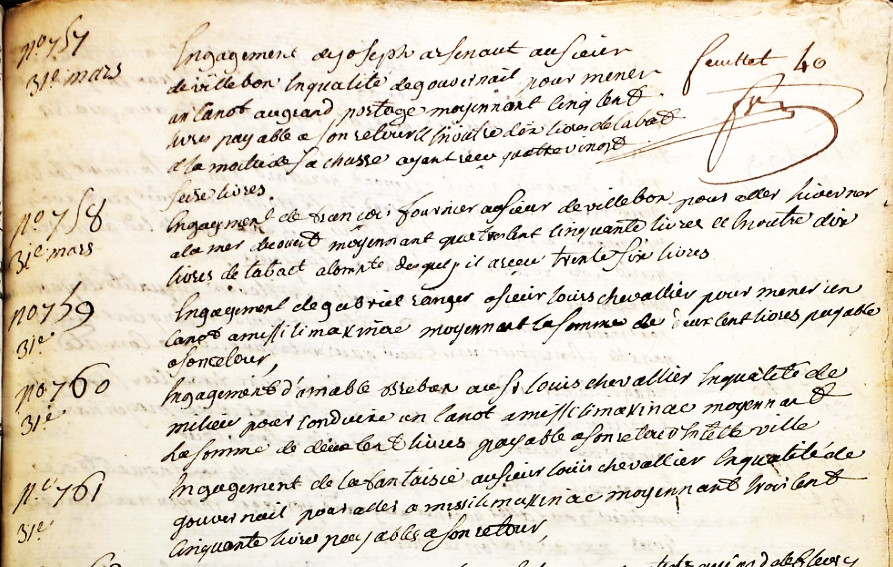 no 757
31e mars
Engagement de joseph arsenaut au sieur
feuillet 40
de villebon En qualité de gouvernail pour mener
un Canot au grand portage moyennant cinq cent
livres payable a son retour Et En outre dix livres de tabact
et la moitié de sa chasse ayant reçu quattre vingt
seize livres
no 758
31e mars
Engagement de françois fournier au sieur de villebon pour aller hiverner
a la mer du ouest moyennant quatre cent cinquante livres et En outre dix
livres de tabact a Compte desquels il a reçu trente six livres
no 759
31e
Engagement de gabriel ranger a sieur louis chevallier pour mener un
Canot a missilimakinac moyennant la somme de deux cent livres payable
a son retour,
no 760
31e
Engagement d'amable au sr louis chevallier En qualité de
milieu pour conduire un Canot a missilimakinac moyennant
La somme de deux cent livres payable a son retour En cette ville
no 761
31e
Engagement de la fantaisie au sieur louis chevallier En qualité de
gouvernail pour aller a missilimakinac moyennant trois cent
cinquante livres payables a son retour,